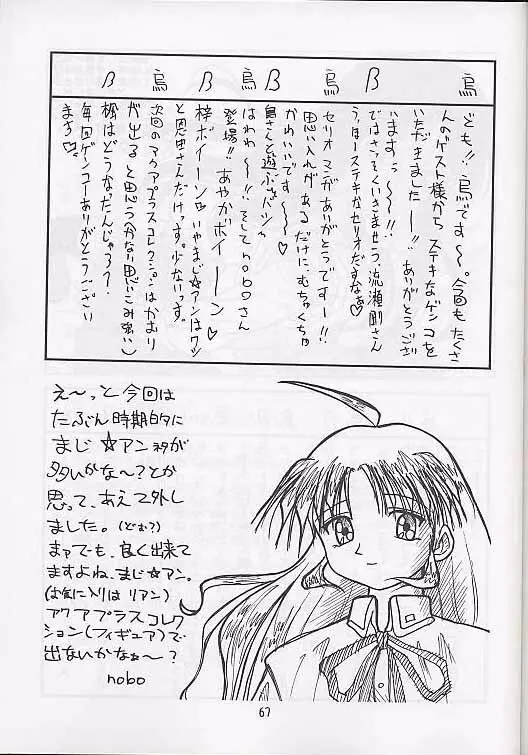 烏 β 烏 β 烏 β 烏 β
ども!! 烏です〜。今回もたくさ
んのゲスト様から ステキなゲンコを
いただきましたー!! ありがとうござ
いますぅ〜!!
ではさっそくいきませう。流瀬剛さん
うほーステキなセリオだすなぁ♡
セリオマンガありがとうですー!!
思い入れがあるだけにむちゃくちゃ
かわいいです〜〜♡
烏さんと遊ぶさバシャ
はわわ〜〜! そしてnoboさん
登場!! あやかボイーン
梓ボイーン♡ いやまじ☆アンはワシ
と恩田さんだけっす。少ないっす。
次回のアクアプラスコレクションはかおり
が出ると思う(分ない思いこみ強い)
楓はどうなったんじゃろ?
毎回ゲンコーありがとうござい
ます♡
え〜っと今回は
たぶん時期的に
まじ☆アンネタが
多いかな〜?とか
思って、あえて外し
ました。(どむ?)
まァでも、良く出来て
ますよね、まじ☆アン。
(お気に入りは リアン)
アクアプラスコレク
ション(フィギュア)で
出ないかなぁ〜?
nobo
67